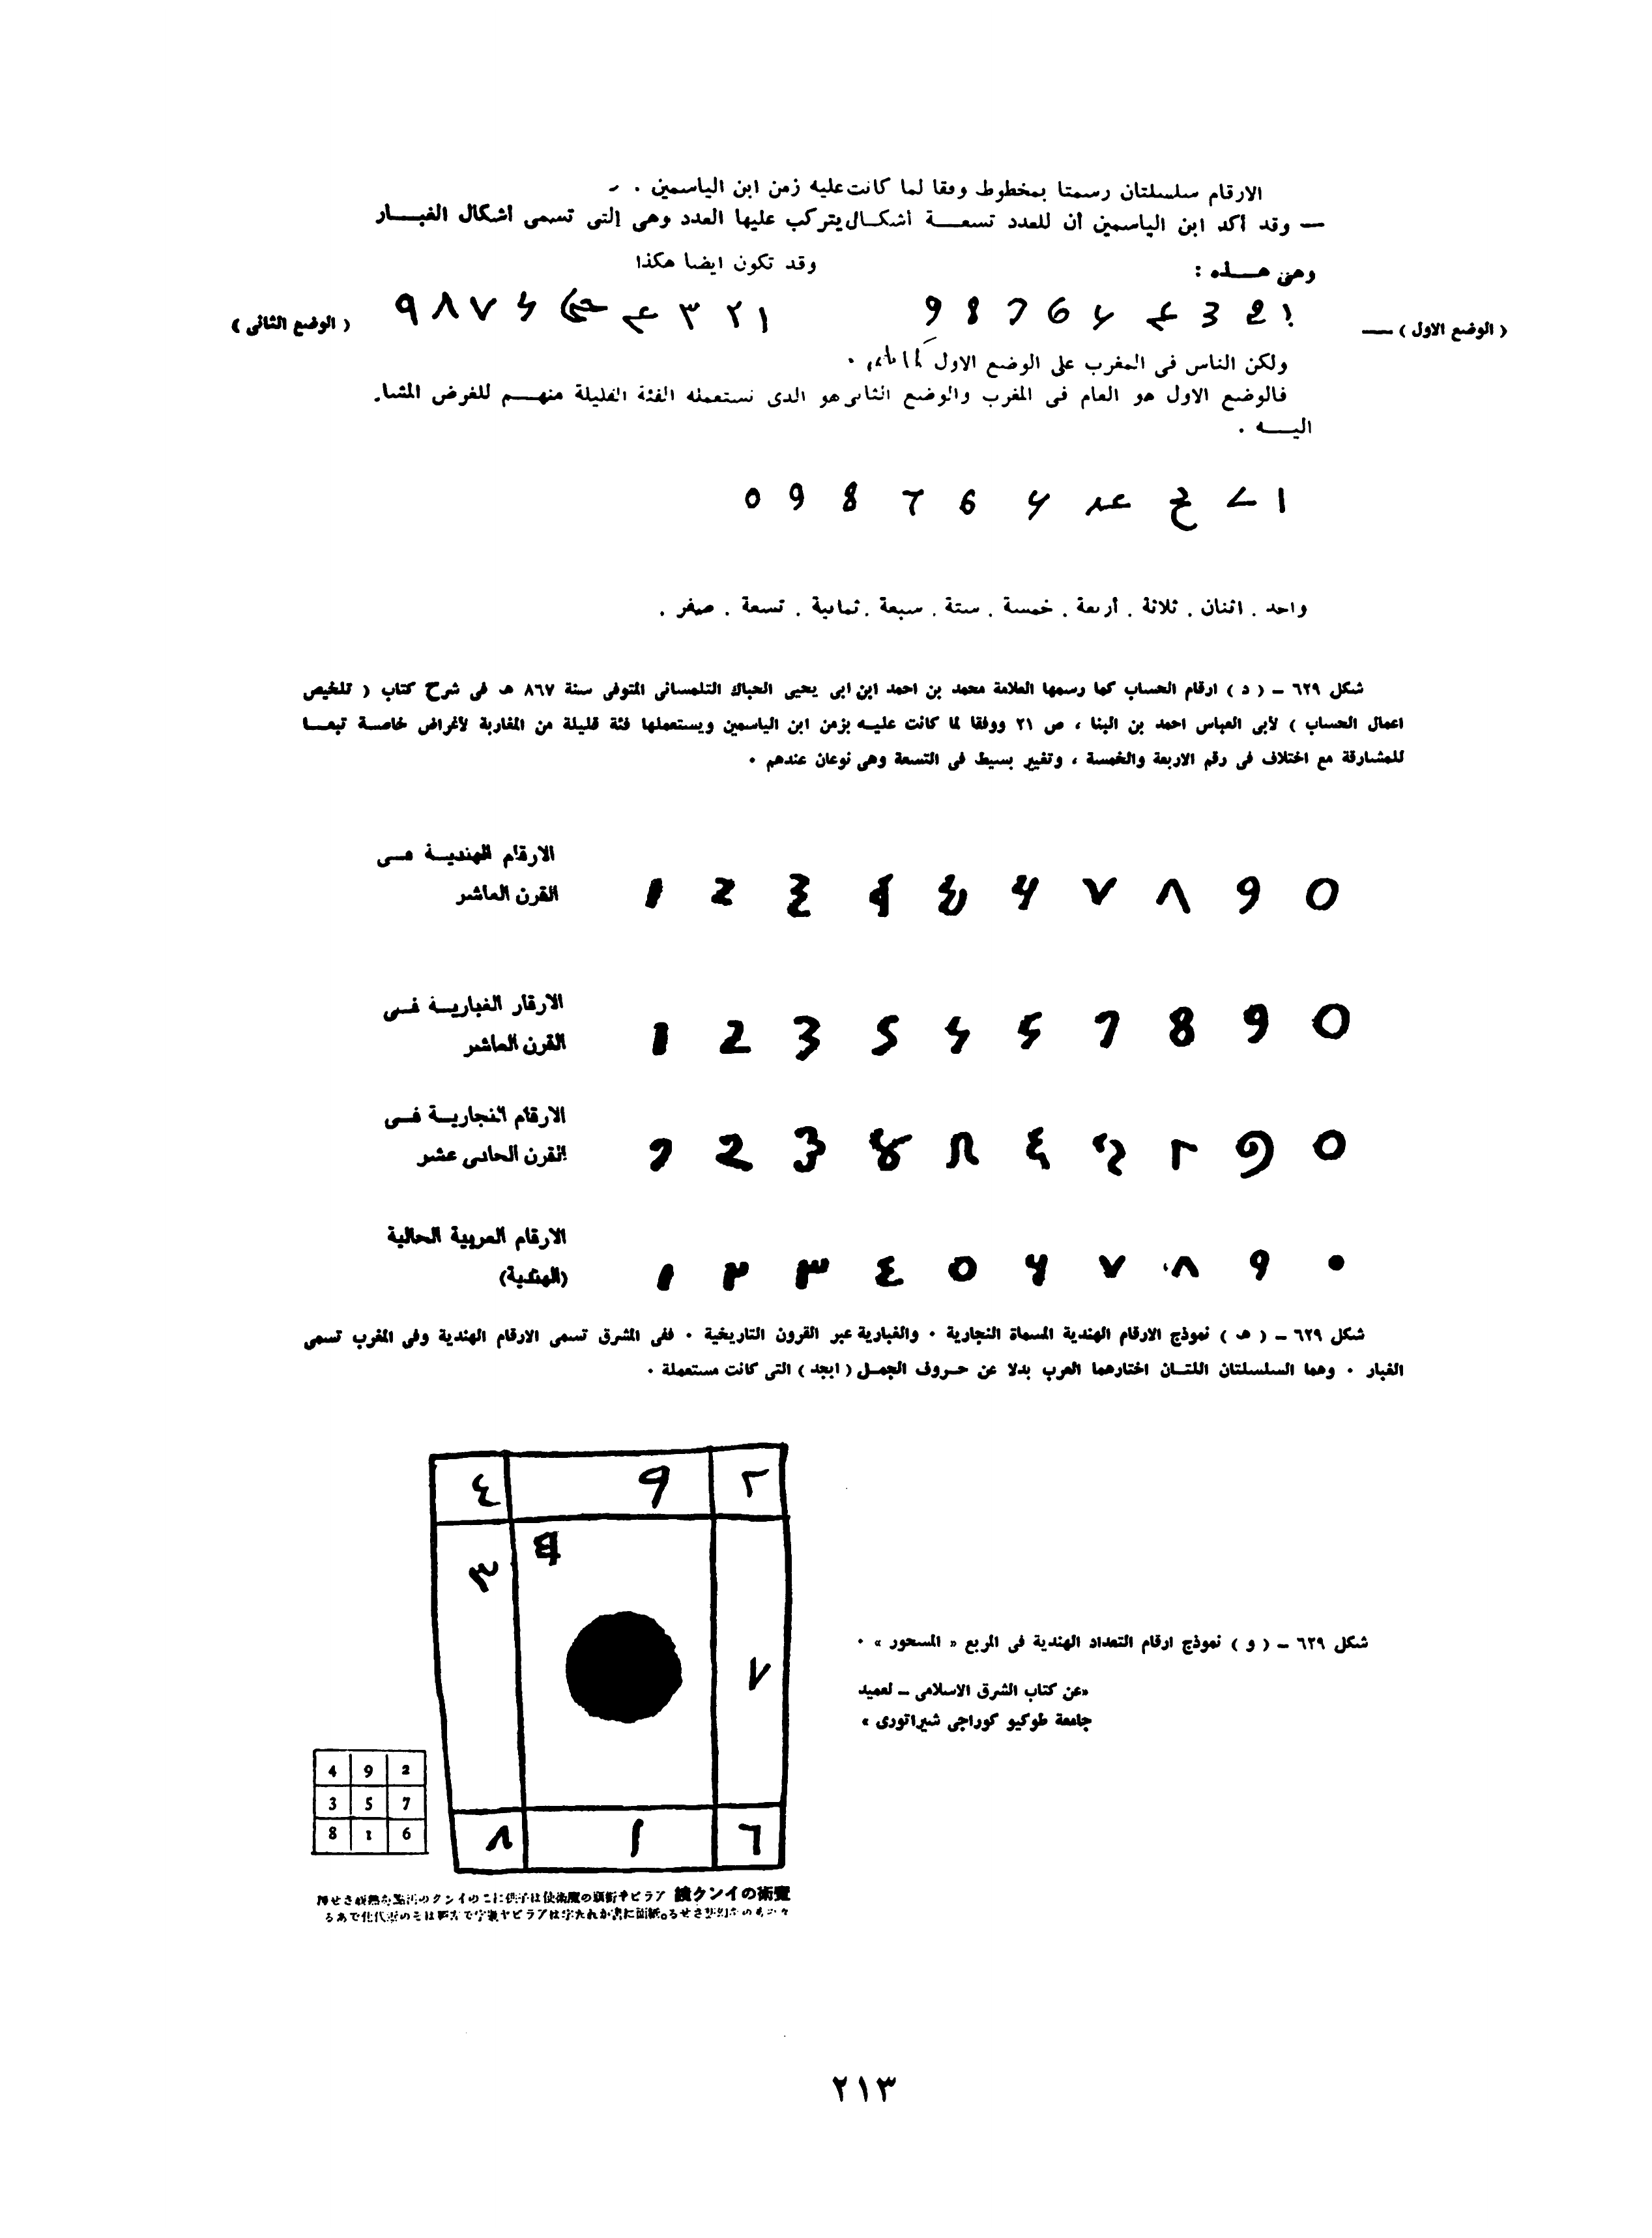 الارقام سلسلتان رسمتا بمخطوط وفقا لما كانت عليه زمن ابن الياسمين .
— وقد أكد ابن الياسمين أن للعدد تسعة أشكال يتركب عليها العدد وهي التى تسمى أشكال الغبار
وهى هذه :
وقد تكون ايضا هكذا
( الوضع الاول ) —
( الوضع الثانى )
ولكن الناس فى المغرب على الوضع الاول
فالوضع الاول هو العام فى المغرب والوضع الثانى هو الذى تستعمله الفئة القليلة منهم للغرض المشار
اليه .
واحد . اثنان . ثلاثة . أربعة . خمسة . ستة . سبعة . ثمانية . تسعة . صفر .
شكل ٦٢٩ – ( د ) ارقام الحساب كما رسمها العلامة محمد بن احمد ابن ابى يحيى الحباك التلمسانى المتوفى سنة ٨٦٧ هـ فى شرح كتاب ( تلخيص
اعمال الحساب ) لأبى العباس احمد بن البنا ، ص ٢١ ووفقا لما كانت عليه بزمن ابن الياسمين ويستعملها فئة قليلة من المغاربة لأغراض خاصة تبعا
للمشارقة مع اختلاف فى رقم الاربعة والخمسة ، وتغيير بسيط فى التسعة وهى نوعان عندهم ٠
الارقام الهندية فى
القرن العاشر
الارقار الغبارية فى
القرن العاشر
1 2 3 5 7 8 9 0
الارقام النجارية فى
القرن الحادى عشر
الارقام العربية الحالية
(الهندية)
١ ٢ ٣ ٤ ٥ ٦ ٧ ٨ ٩ ٠
شكل ٦٢٩ – ( هـ ) نموذج الارقام الهندية المسماة النجارية ٠ والغبارية عبر القرون التاريخية ٠ ففى المشرق تسمى الارقام الهندية وفى المغرب تسمى
الغبار ٠ وهما السلسلتان اللتان اختارهما العرب بدلا عن حروف الجمل ( ابجد ) التى كانت مستعملة ٠
٤ ٩ ٢
٣ ٧
٨ ١ ٦
شكل ٦٢٩ – ( و ) نموذج ارقام التعداد الهندية فى المربع « المسحور » ٠
«عن كتاب الشرق الاسلامى – لعميد
جامعة طوكيو كوراجى شيراتورى »
4 9 2
3 5 7
8 1 6
٢١٣